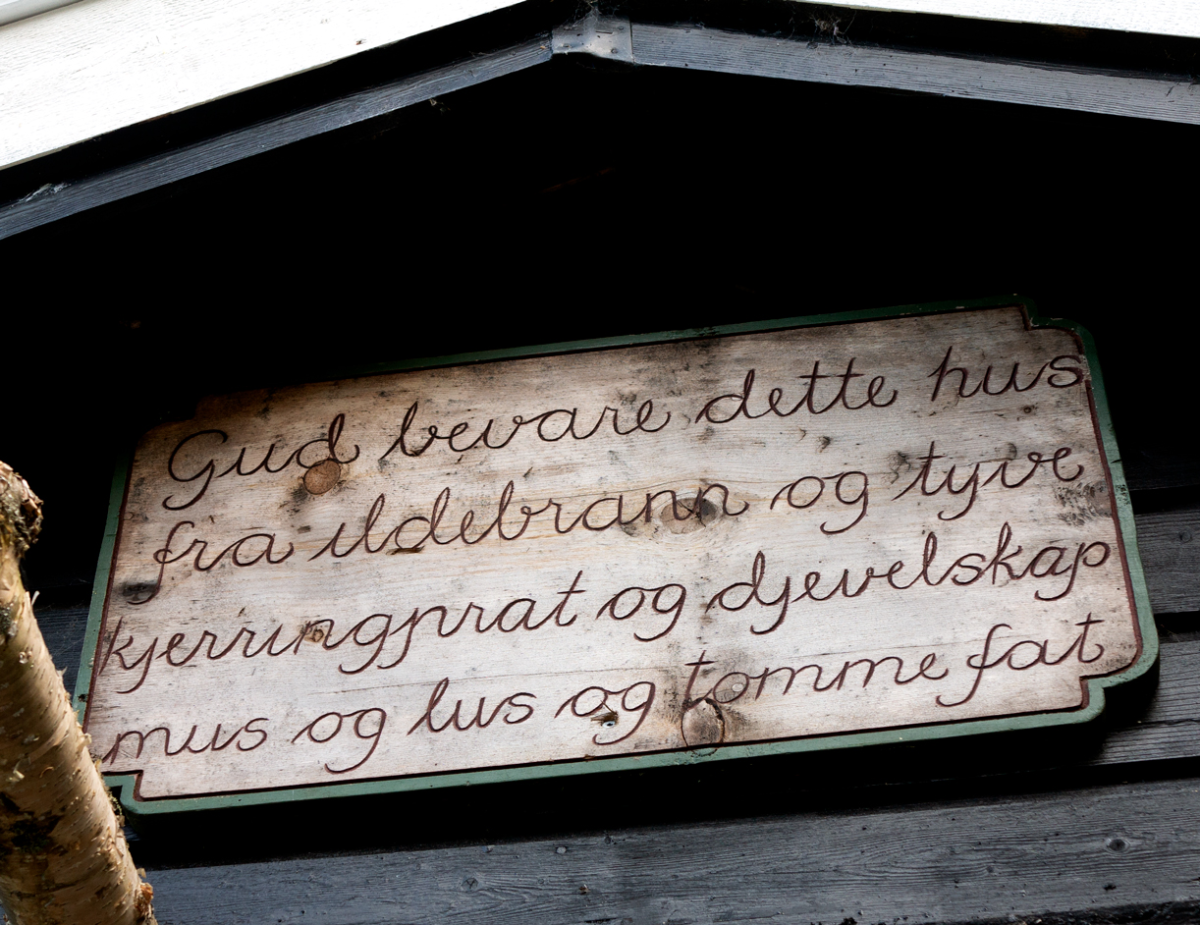 Gud bevare dette hus
fra ildebrann og tyve
kjerringprat og djevelskap
mus og lus og tomme fat